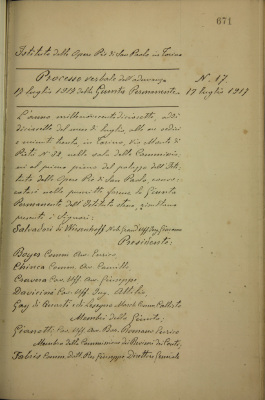 671
Istituto delle Opere Pie di San Paolo in Torino
Processo verbale dell'adunanza
17 luglio 1917 della Giunta Permanente
N. 17
17 luglio 1917
L'anno millenovecentodiciassette, addì
diciassette del mese di luglio, alle ore sedici
e minuti trenta, in Torino, Via Monte di
Pietà N. 32 nella sala delle Commissio-
ni al primo piano del palazzo dell'Isti-
tuto delle Opere Pie di San Paolo, convo-
catasi nelle prescritte forme la Giunta
Permanente dell'Istituto stesso, sono inter-
venuti i Signori:
Salvadori di Wiesenhoff Nob. Grand'Uff. Avv. Giovanni
Presidente;
Boyer Comm. Avv. Enrico,
Chionca Comm. Avv. Camillo,
Cravera Cav. Uff. Avv. Giuseppe
Davicini Cav. Uff. Ing. Attilio
Gay di Quarti
Membri della Giunta;
Gianotti Cav. Uff. Avv. Romano Enrico
Membro della Commissione di Revisori dei Conti;
Fabris Comm. Dott. Giuseppe Direttore Generale